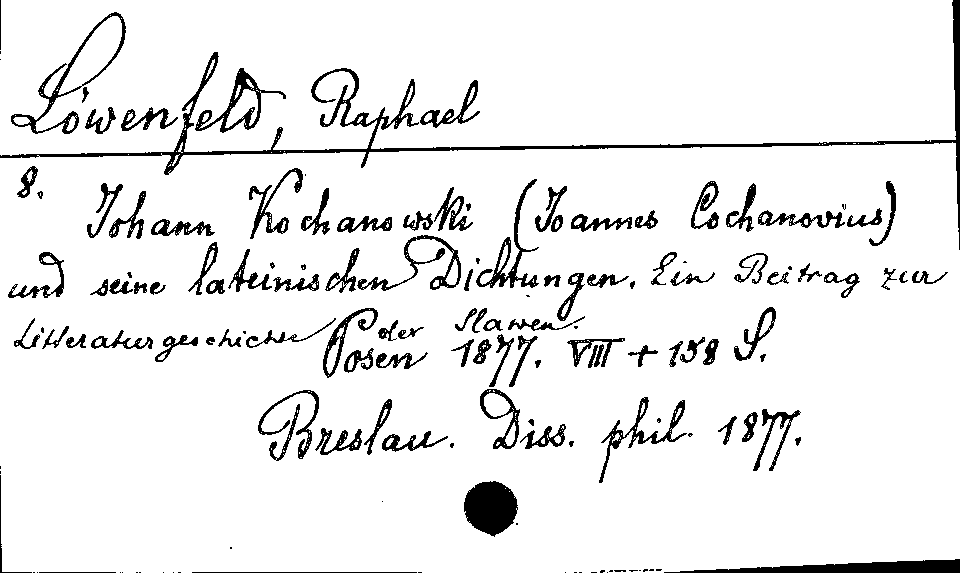 Löwenfeld, Raphael
8.
Johann Kochanowski (Joannes Cochanovius)
und seine lateinischen Dichtungen. Ein Beitrag zur
Litteraturgeschichte der Slawen.
Posen 1877. VIII + 158 S.
Breslau. Diss. phil. 1877.